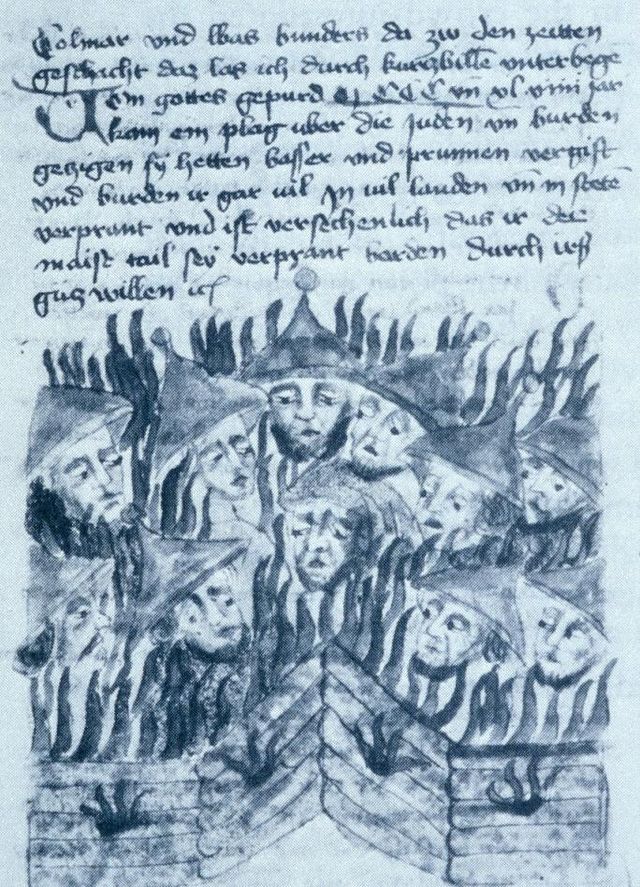 Colmar vnd was wunders da zw den zeitten
geschicht das las ich durch kurczwille vnterwege
Item gottes gepurd M CCC vn xl viiii jar
kam ein plag über die juden vn wurden
geczigen sy hetten wasser vnd prunnen vergift
vnd wurden ir gar vil In vil landen vn in stete
verprant vnd ist versechenlich das ir der
maist tail sey verprant worden durch irß
gutz willen